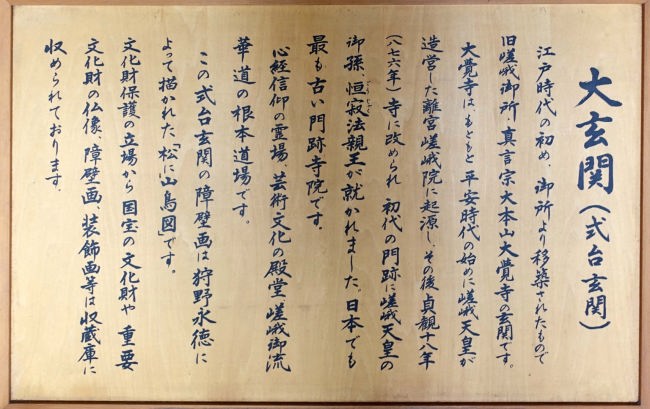 大玄関(式台玄関)
江戸時代の初め、御所より移築されたもので
旧嵯峨御所 真言宗大本山大覺寺の玄関です。
大覺寺は、もともと平安時代の始めに嵯峨天皇が
造営した離宮嵯峨院に起源し、その後貞観十八年
(八七六年)寺に改められ 初代の門跡に嵯峨天皇の
御孫 恒寂法親王が就かれました。日本でも
最も古い門跡寺院です。
心経信仰の霊場、芸術文化の殿堂 嵯峨御流
華道の根本道場です。
この式台玄関の障壁画は狩野永徳に
よって描かれた「松に山鳥図」です。
文化財保護の立場から 国宝の文化財や 重要
文化財の仏像、障壁画、装飾画等は収蔵庫に
収められております。